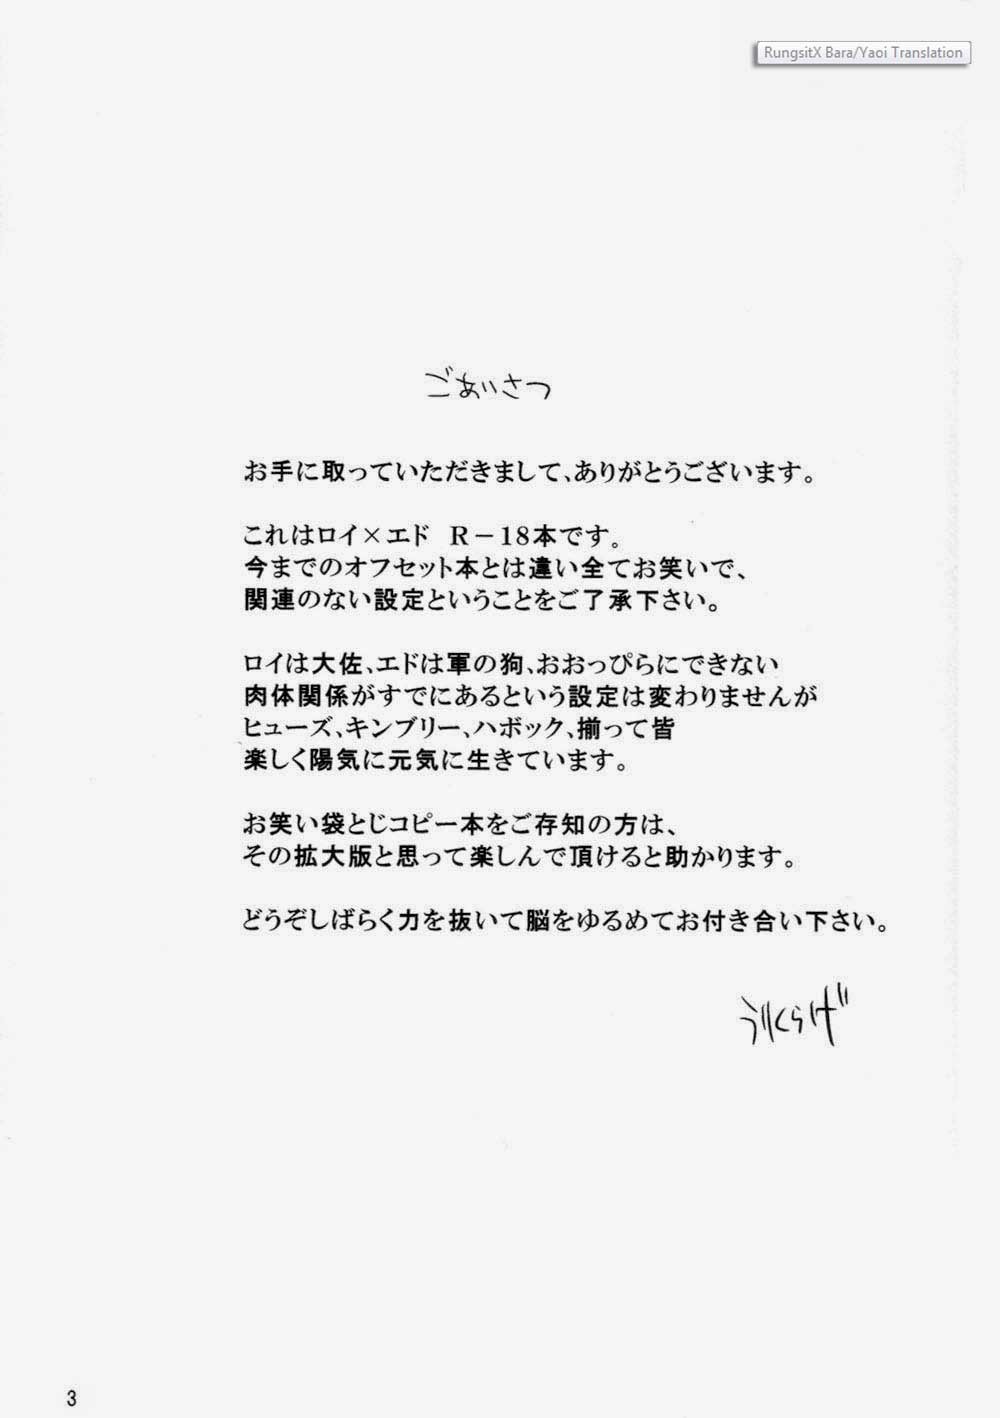 RungsitX Bara/Yaoi Translation
ごあいさつ
お手に取っていただきまして、ありがとうございます。
これはロイ×エド R－18本です。
今までのオフセット本とは違い全てお笑いで、
関連のない設定ということをご了承下さい。
ロイは大佐、エドは軍の狗、おおっぴらにできない
肉体関係がすでにあるという設定は変わりませんが
ヒューズ、キンブリー、ハボック、揃って皆
楽しく陽気に元気に生きています。
お笑い袋とじコピー本をご存知の方は、
その拡大版と思って楽しんで頂けると助かります。
どうぞしばらく力を抜いて脳をゆるめてお付き合い下さい。
うりくらげ
3